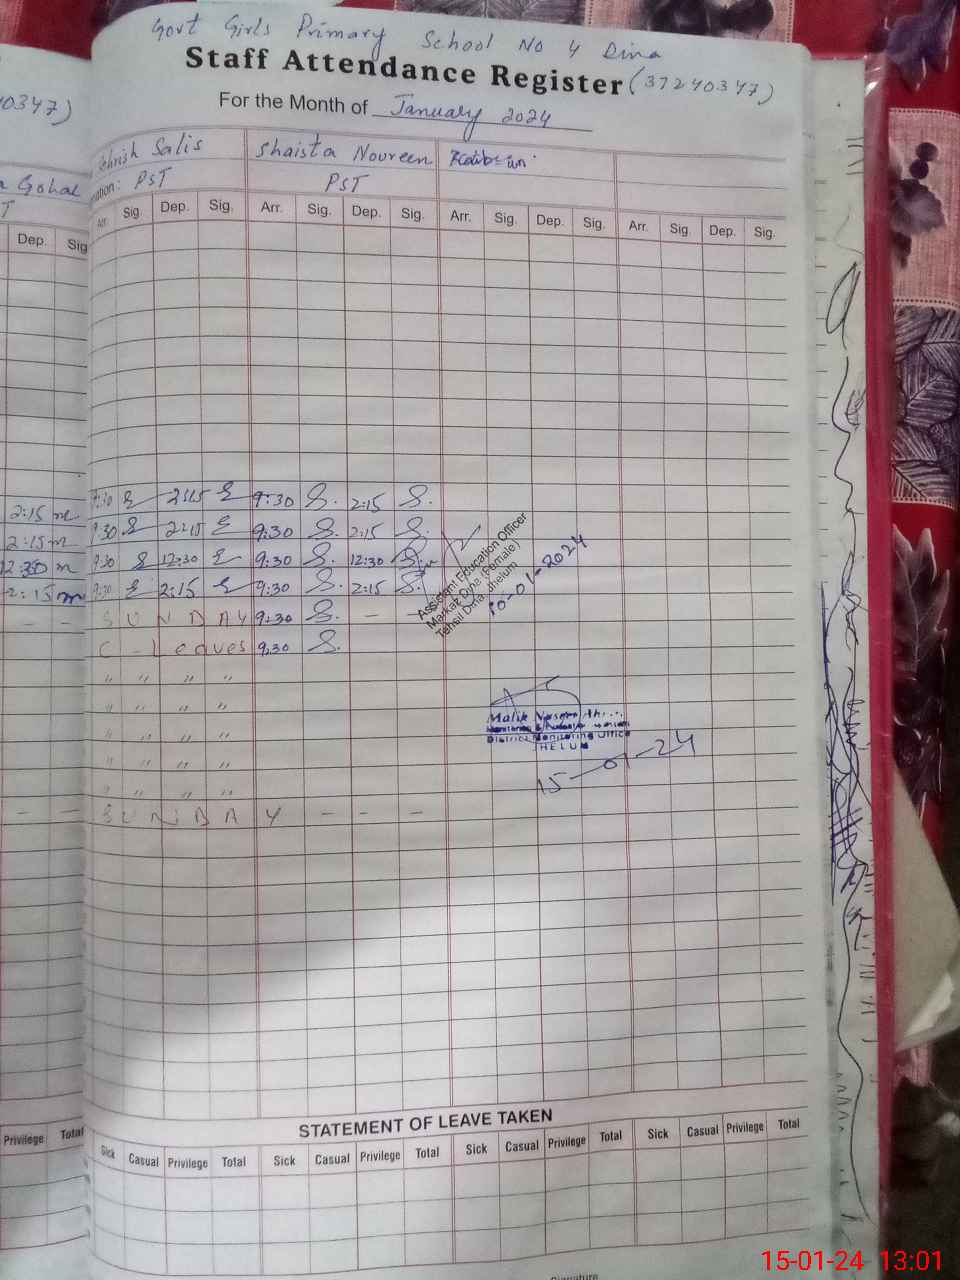 Govt Girls Primary School No 4 Dina
Staff Attendance Register (37240347)
0347)
For the Month of January 2024
Salis Shaista Noureen
Gohal
PST PST
Dep. Sig
Arr. Sig. Dep. Sig. Arr. Sig. Dep. Sig. Arr. Sig. Dep. Sig. Arr. Sig. Dep. Sig.
2:15 9:30 2:15 9:30 S. 2:15 S.
2:15 9:30 2:15 9:30 S. 2:15 S.
12:30 9:30 12:30 9:30 S. 12:30 S.
2:15 9:30 2:15 9:30 S. 2:15 S.
Assistant Education Officer
Markaz Dina (Female)
Tehsil Dina Jhelum
10-01-2024
- - SUNDAY 9:30 S. -
C-Leaves 9:30 S.
" " " "
" " " "
" " " "
" " " "
" " " "
Malik
District Monitoring Office
JHELUM
15-01-24
- - SUNDAY - - -
STATEMENT OF LEAVE TAKEN
Privilege Total
Sick Casual Privilege Total Sick Casual Privilege Total Sick Casual Privilege Total Sick Casual Privilege Total
Signature
15-01-24 13:01